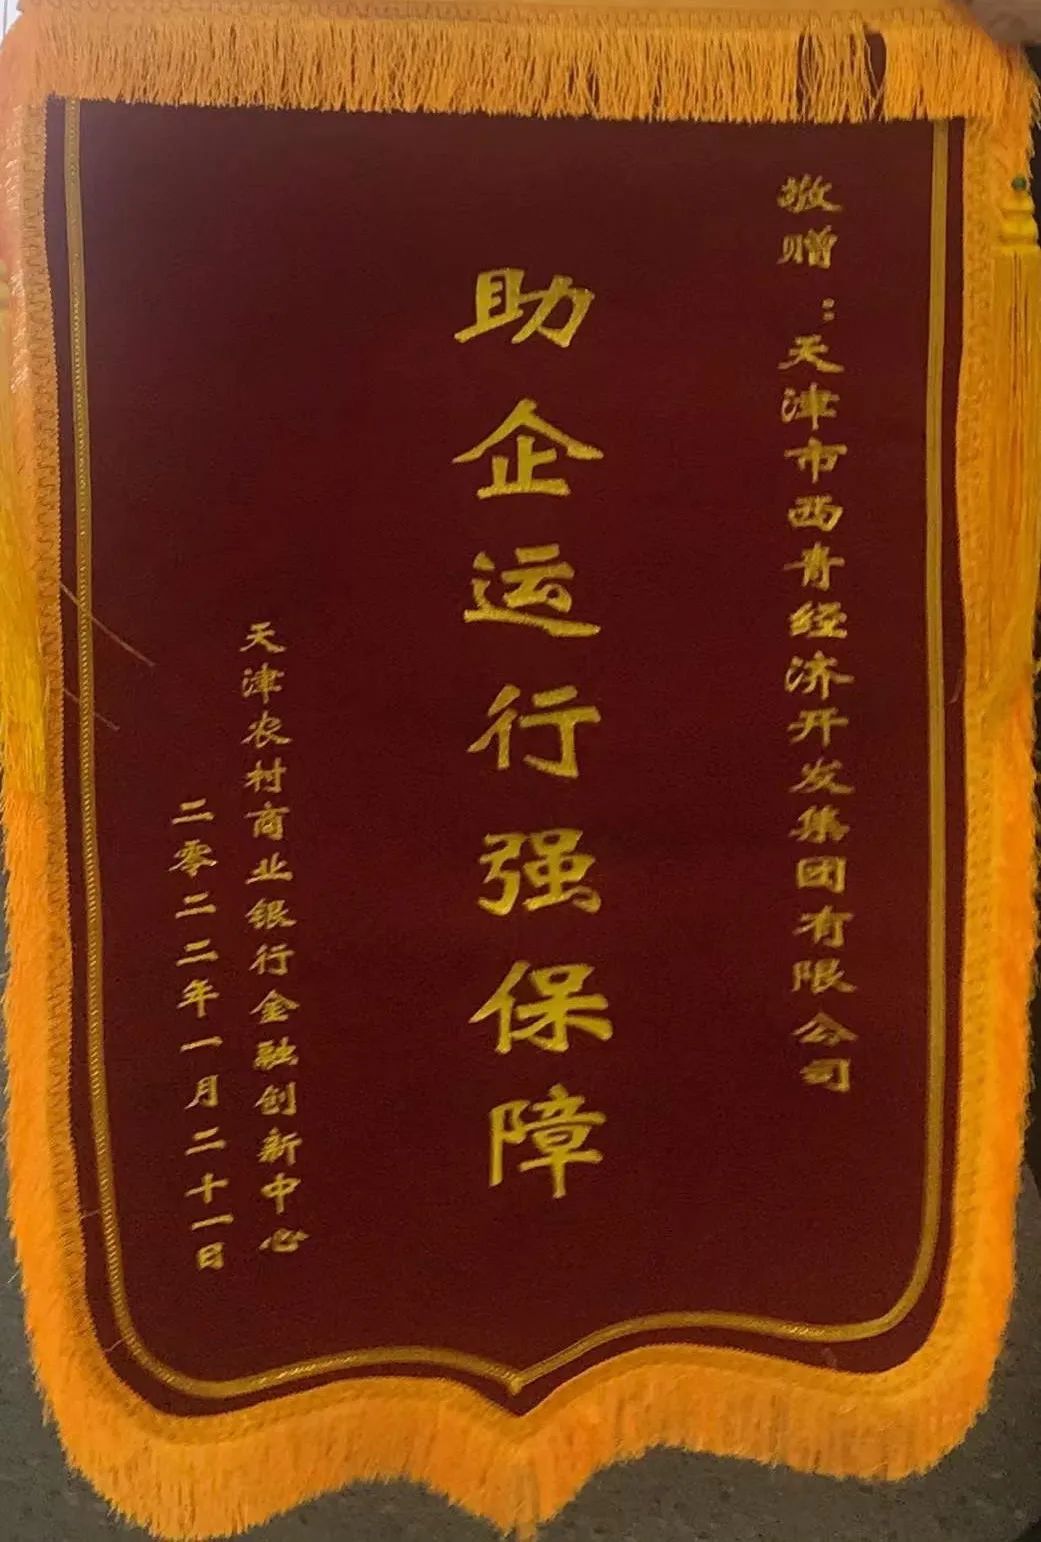 敬赠：天津市西青经济开发集团有限公司
助企运行强保障
天津农村商业银行金融创新中心
二零二二年一月二十一日